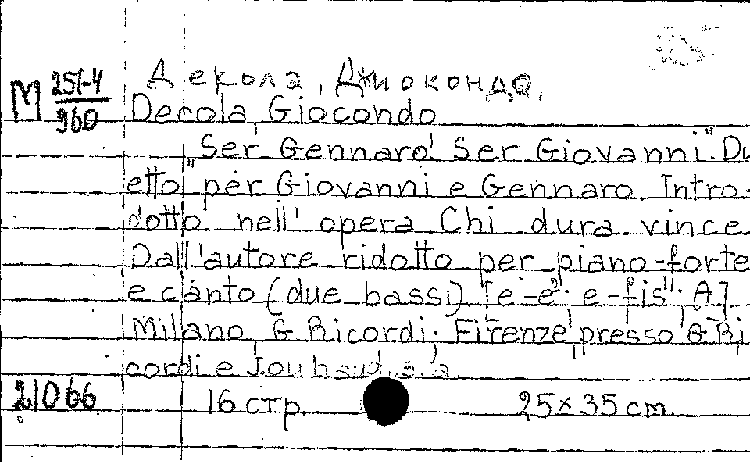 М 251-4/960
Декола, Джиокондо.
Decola, Giocondo
"Ser Gennaro! Ser Giovanni." Du
etto per Giovanni e Gennaro. Intro-
dotto nell' opera Chi dura vince
Dall'autore ridotto per piano-forte
e canto (due bassi) [e-e". e-fis". A]
Milano, G Ricordi. Firenze, presso G Ri
cordi e Jouhaud, s. a.
21066 16 стр. 25×35 cm.